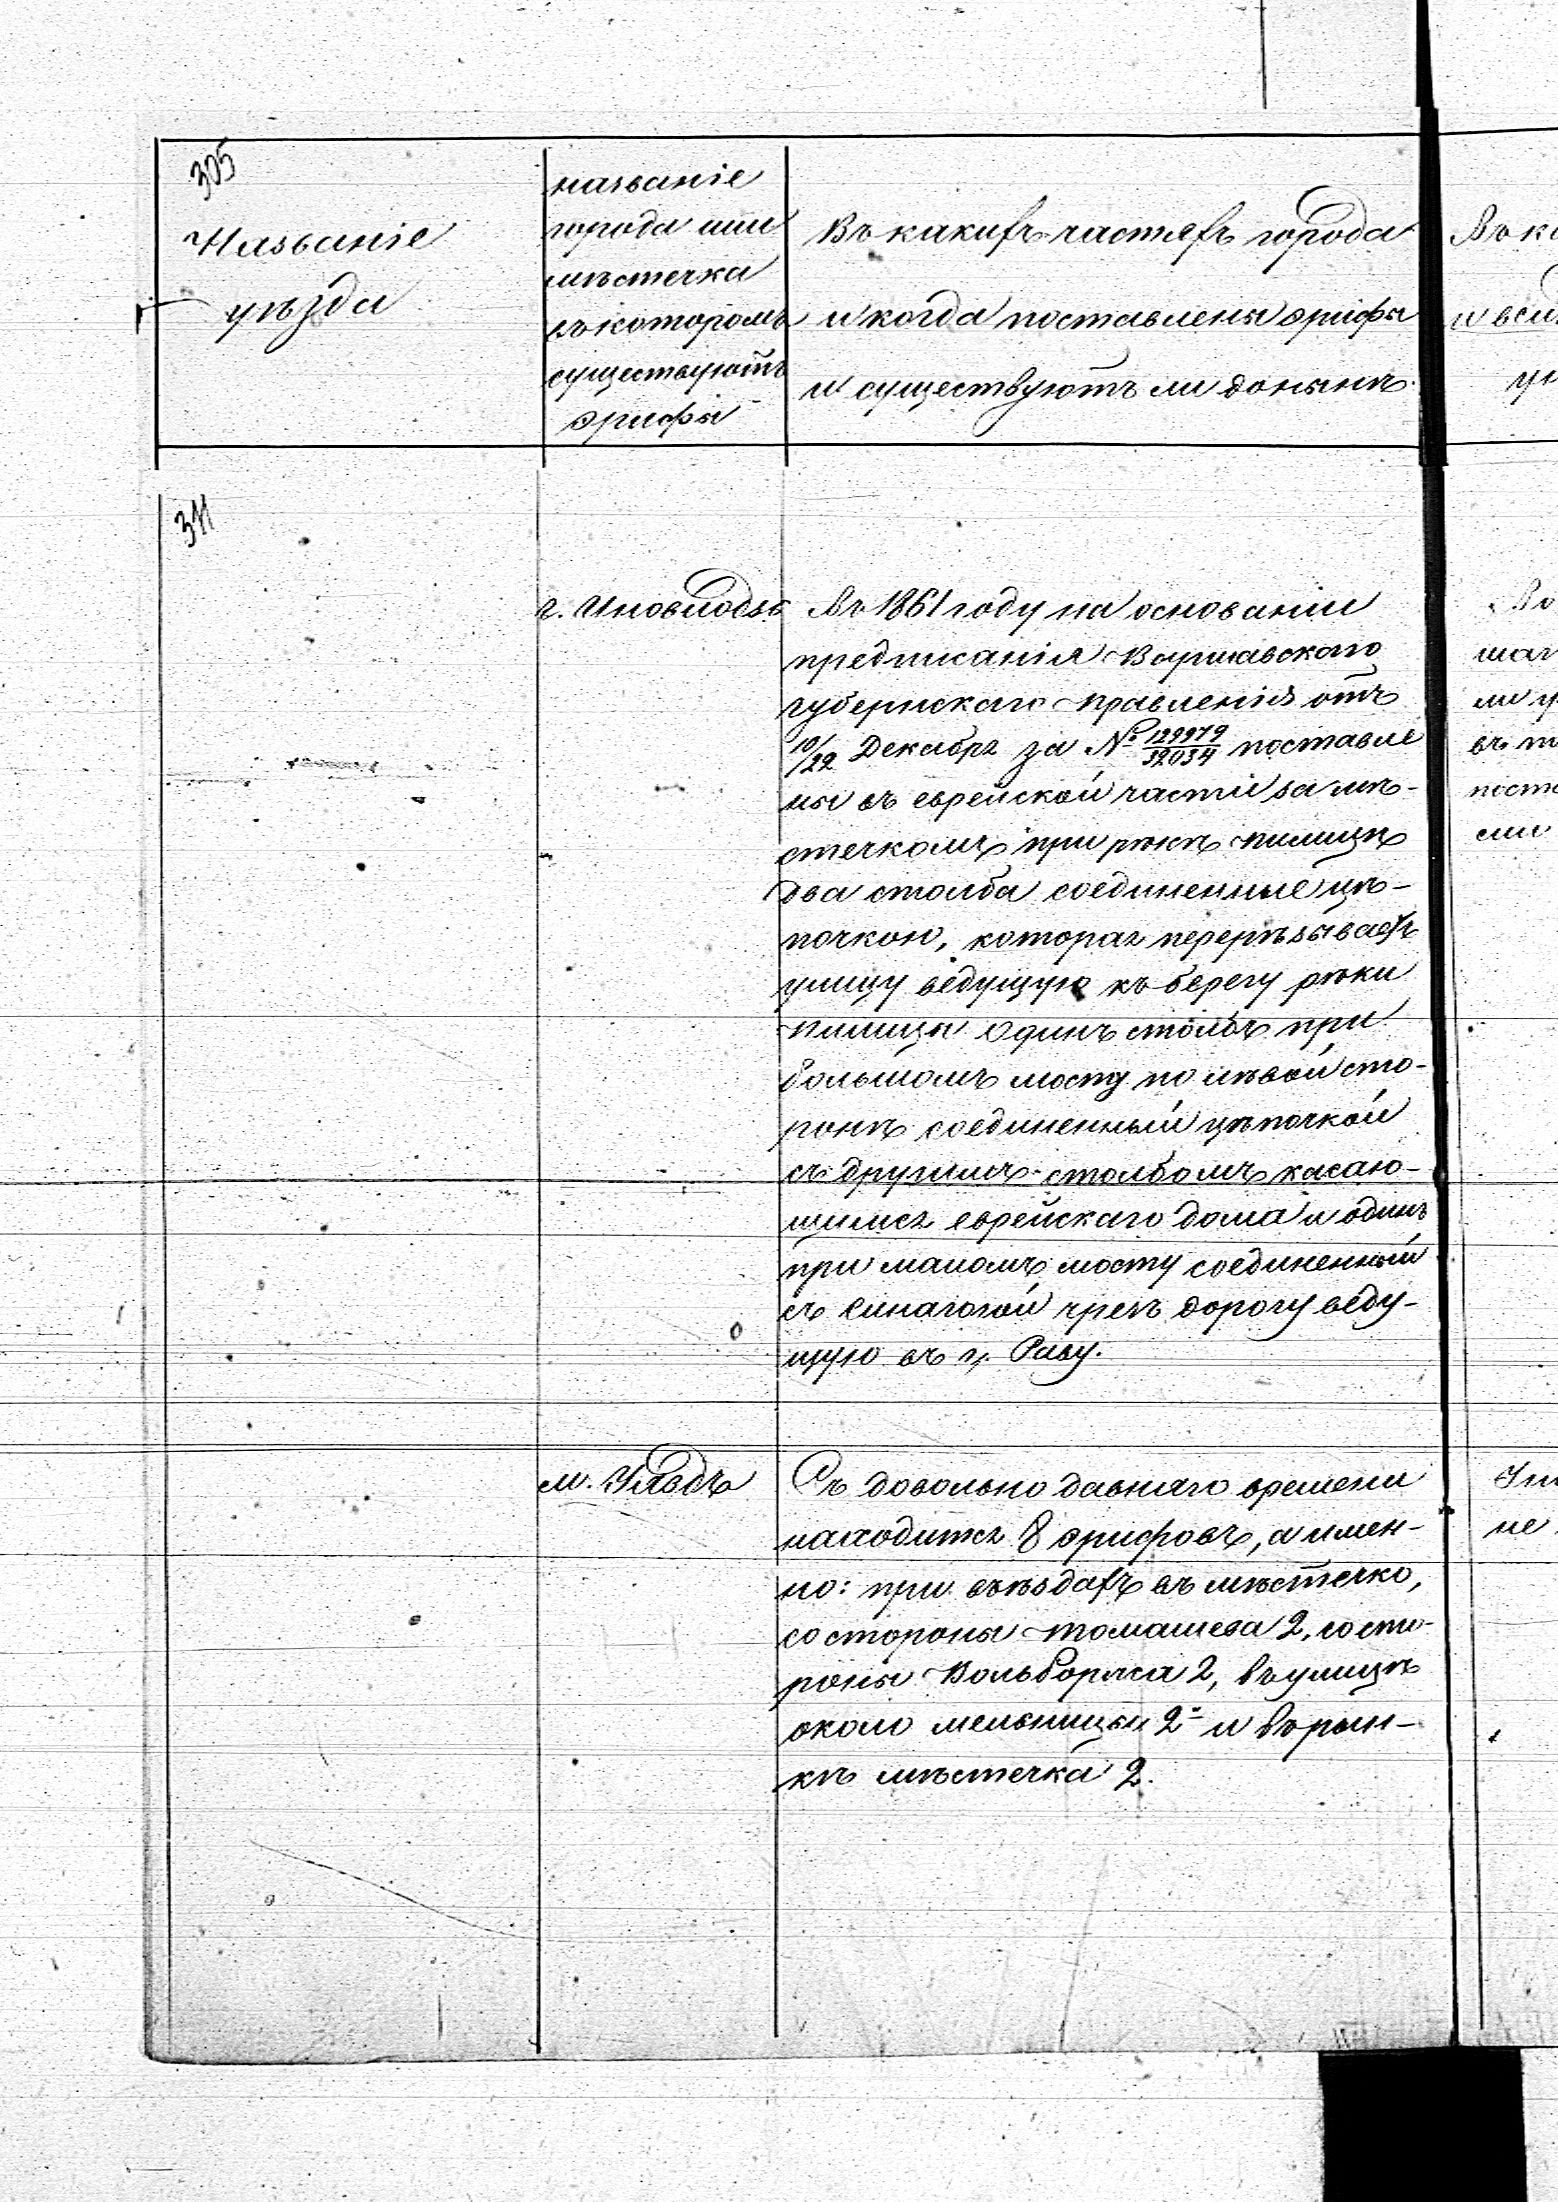 305
Названіе
уѣзда
названіе
города или
мѣстечка
въ которомъ
существуютъ
эрифы
Въ какихъ частяхъ города
и когда поставлены эрифы
и существуютъ ли донынѣ.
Въ ка
311
г. Иновлодзь
Въ 1861 году на основаніи
предписанія Варшавскаго
губернскаго правленія отъ
10/22 Декабря за № 129979/32034 поставле
ны въ еврейской части за мѣ-
стечкомъ при рѣкѣ Пилицѣ
два столба соединенные цѣ-
почкою, которая перерѣзываетъ
улицу ведущую къ берегу рѣки
Пилицы одинъ столбъ при
большомъ мосту по лѣвой сто-
ронѣ соединенный цѣпочкой
съ другимъ столбомъ касаю-
щимся еврейскаго дома и одинъ
при маломъ мосту соединенный
съ синагогой чрезъ дорогу веду-
щую въ г. Раву.
Во
шаг
ли у
въ
пост
ели
м. Уяздъ
Съ довольно давняго времени
находится 8 эрифовъ, а имен-
но: при въѣздахъ въ мѣстечко,
со стороны Томашева 2, со сто-
роны Вольборжа 2, въ улицѣ
около мельницы 2 и въ рын-
кѣ мѣстечка 2.
не